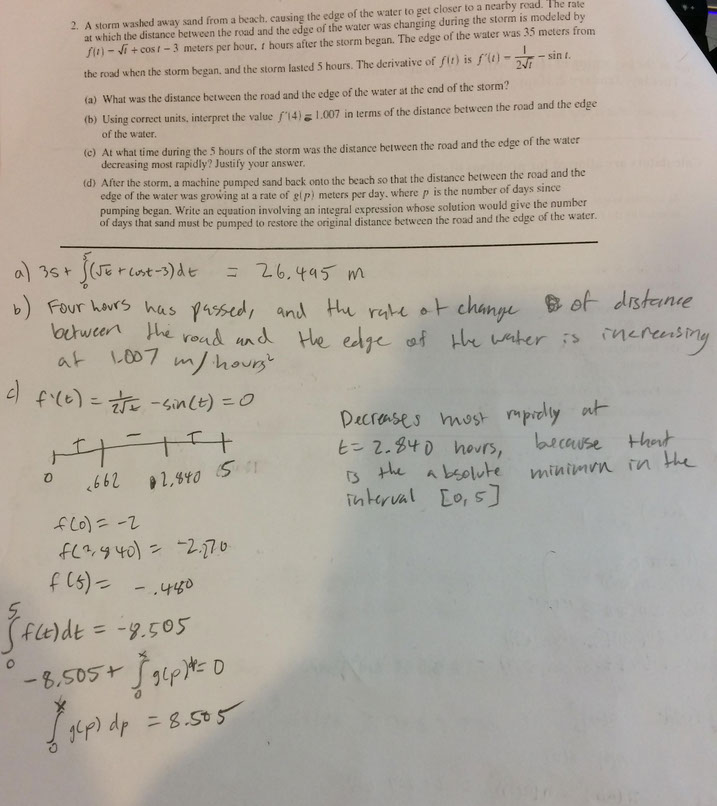 2. A storm washed away sand from a beach, causing the edge of the water to get closer to a nearby road. The rate
at which the distance between the road and the edge of the water was changing during the storm is modeled by
f(t) = √t + cos t − 3 meters per hour, t hours after the storm began. The edge of the water was 35 meters from
the road when the storm began, and the storm lasted 5 hours. The derivative of f(t) is f'(t) = 1/(2√t) − sin t.
(a) What was the distance between the road and the edge of the water at the end of the storm?
(b) Using correct units, interpret the value f'(4) = 1.007 in terms of the distance between the road and the edge
of the water.
(c) At what time during the 5 hours of the storm was the distance between the road and the edge of the water
decreasing most rapidly? Justify your answer.
(d) After the storm, a machine pumped sand back onto the beach so that the distance between the road and the
edge of the water was growing at a rate of g(p) meters per day, where p is the number of days since
pumping began. Write an equation involving an integral expression whose solution would give the number
of days that sand must be pumped to restore the original distance between the road and the edge of the water.
a) 35 + ∫₀⁵(√t + cost - 3)dt = 26.495 m
b) Four hours has passed, and the rate of change of distance
between the road and the edge of the water is increasing
at 1.007 m/hours²
c) f'(t) = 1/(2√t) - sin(t) = 0
+ − +
0 .662 2.840 5
f(0) = -2
f(2.840) = -2.270
f(5) = -.480
Decreases most rapidly at
t = 2.840 hours, because that
is the absolute minimum in the
interval [0,5]
∫₀⁵ f(t)dt = -8.505
-8.505 + ∫₀ˣ g(p)dp = 0
∫₀ˣ g(p) dp = 8.505